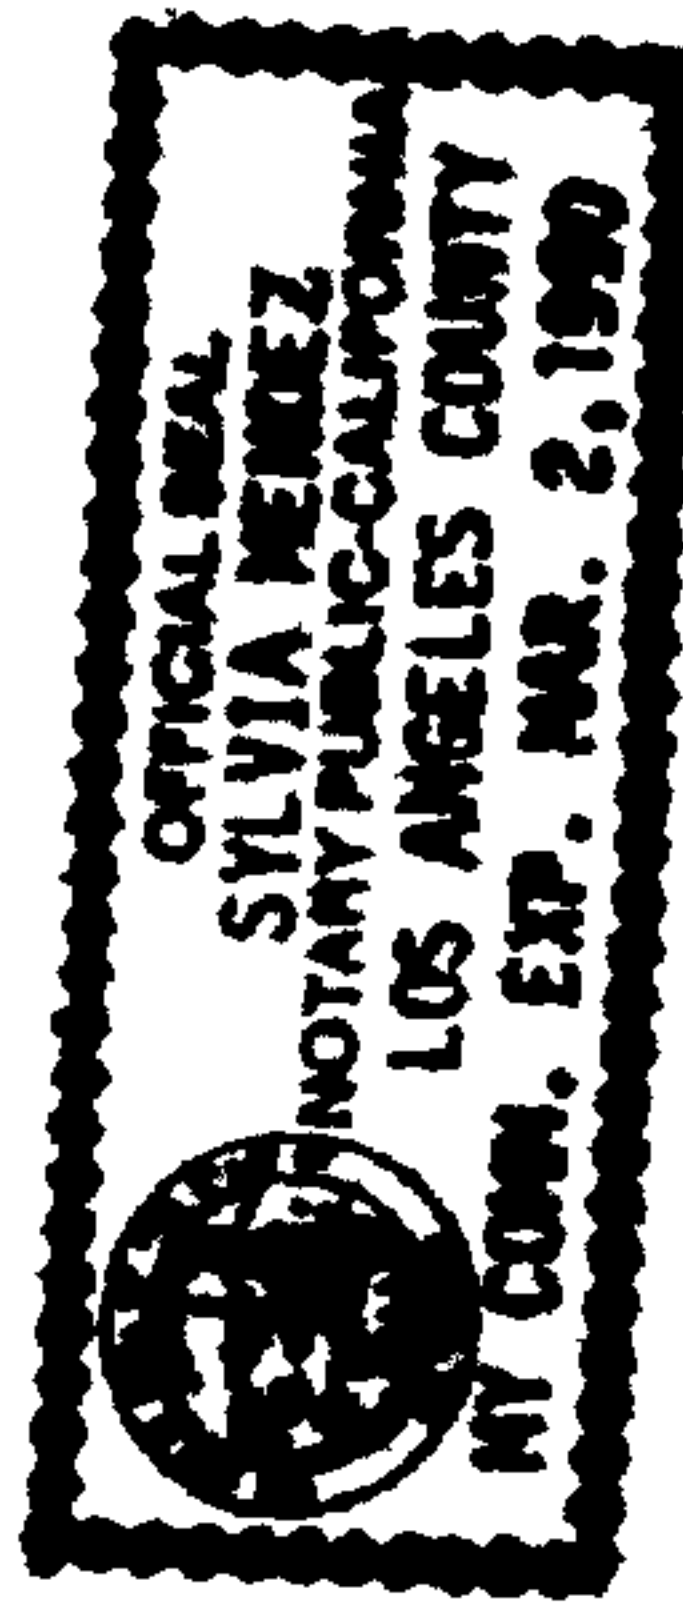 OFFICIAL SEAL
SYLVIA MENDEZ
NOTARY PUBLIC-CALIFORNIA
LOS ANGELES COUNTY
MY COMM. EXP. MAR. 2, 1990